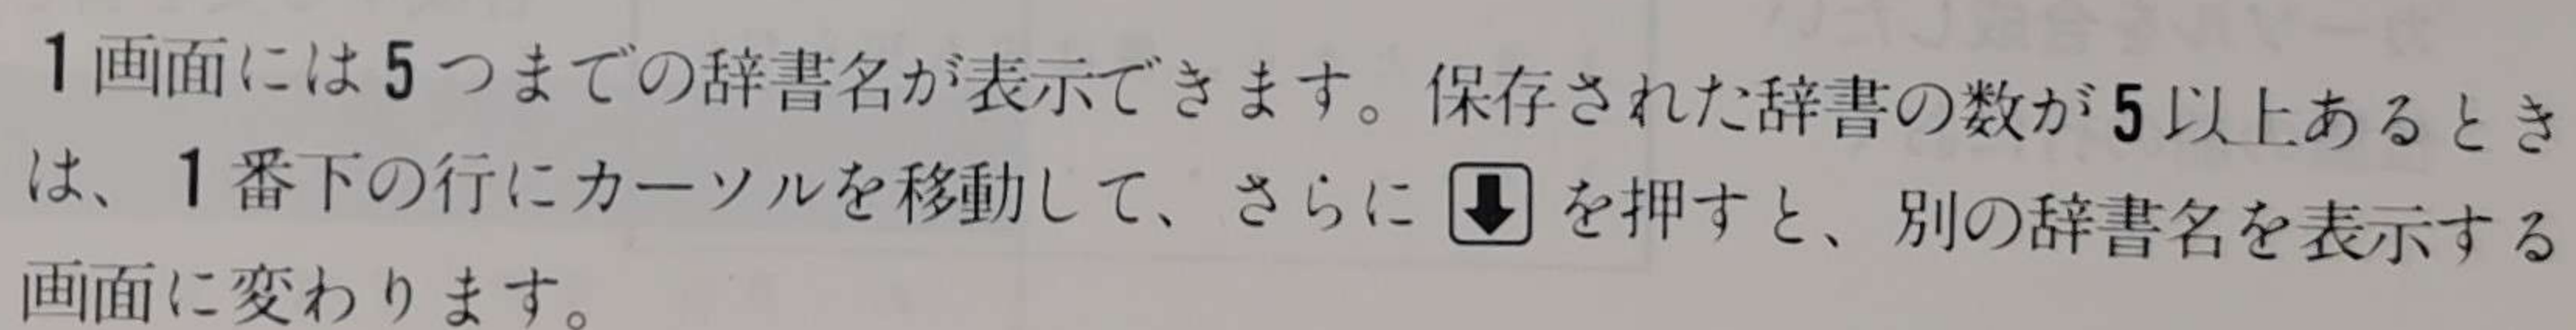 1画面には5つまでの辞書名が表示できます。保存された辞書の数が5以上あるとき
は、1番下の行にカーソルを移動して、さらに⬇を押すと、別の辞書名を表示する
画面に変わります。